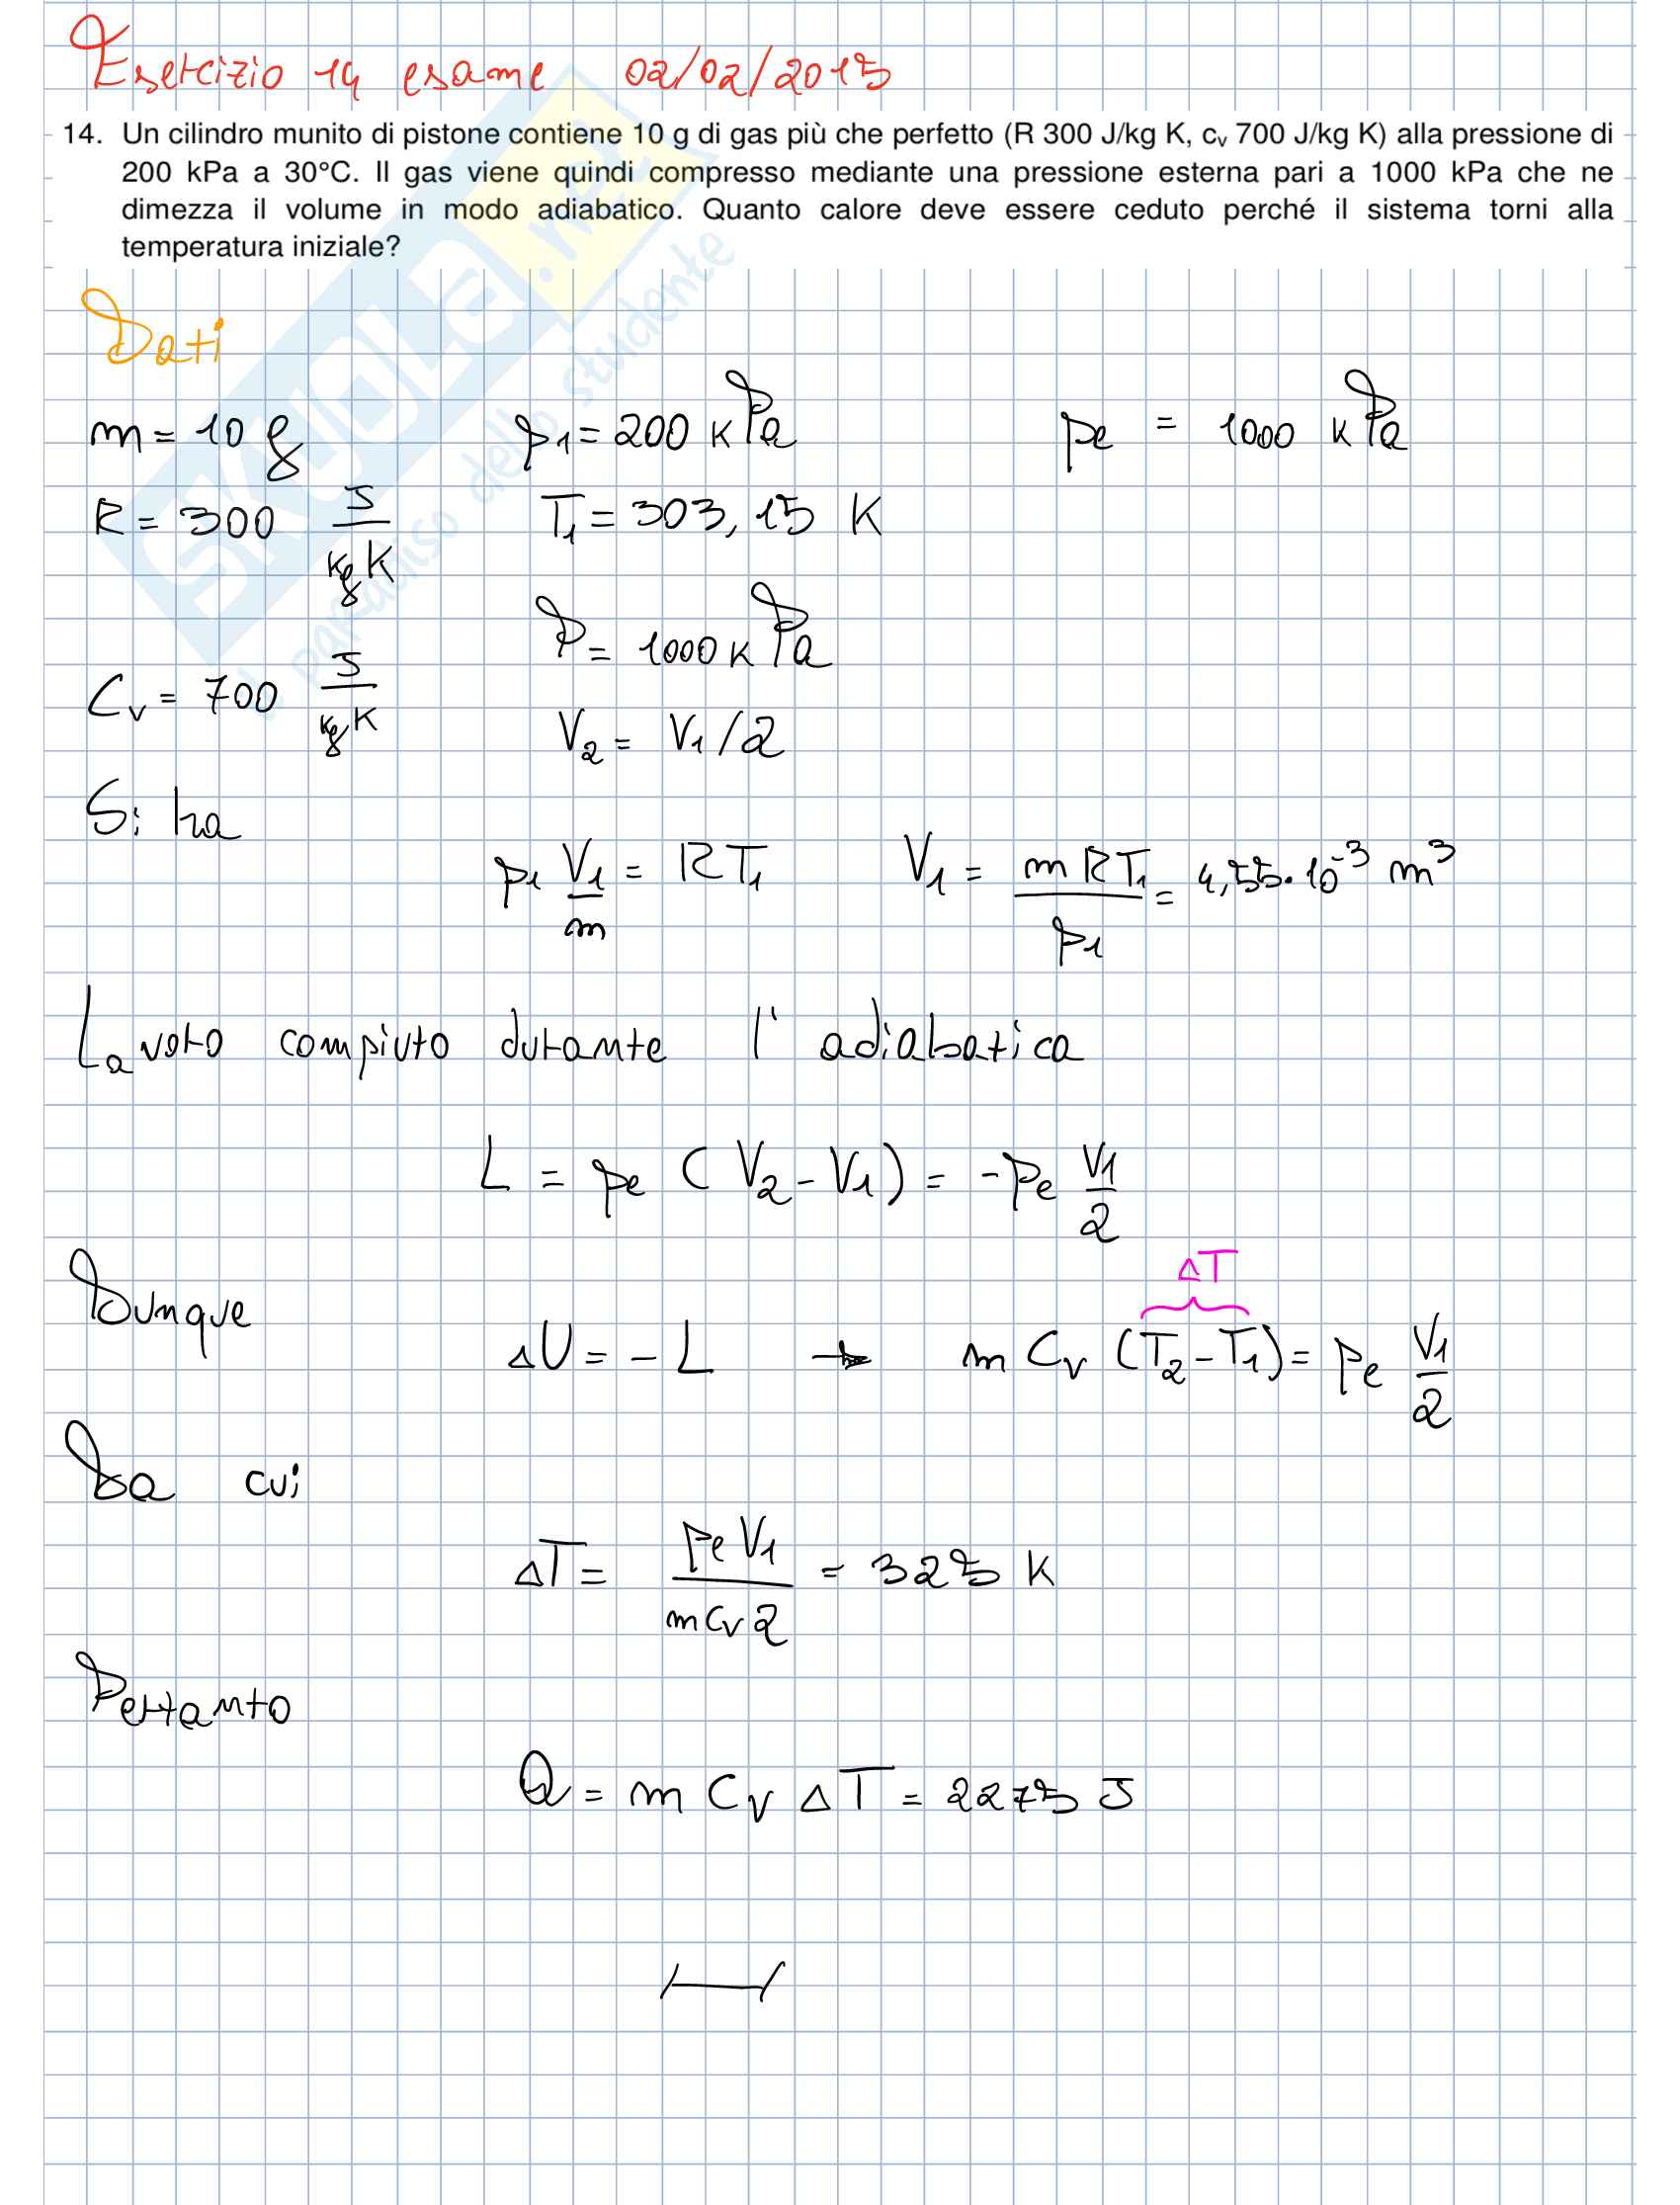 Esercizio 14 esame 02/02/2015
14. Un cilindro munito di pistone contiene 10 g di gas più che perfetto (R 300 J/kg K, cv 700 J/kg K) alla pressione di
200 kPa a 30°C. Il gas viene quindi compresso mediante una pressione esterna pari a 1000 kPa che ne
dimezza il volume in modo adiabatico. Quanto calore deve essere ceduto perché il sistema torni alla
temperatura iniziale?
SKUOLA.net
il paradiso dello studente
Dati
m = 10 g p1 = 200 kPa pe = 1000 kPa
R = 300 J/kg K T1 = 303,15 K
P = 1000 kPa
Cv = 700 J/kg K V2 = V1/2
Si ha
p1 V1/m = RT1 V1 = m R T1/p1 = 4,55·10^-3 m^3
Lavoro compiuto durante l'adiabatica
L = pe (V2 - V1) = -pe V1/2
ΔT
Dunque ΔU = -L → m Cv (T2 - T1) = pe V1/2
Da cui
ΔT = pe V1/m Cv 2 = 325 K
Pertanto
Q = m Cv ΔT = 2275 J